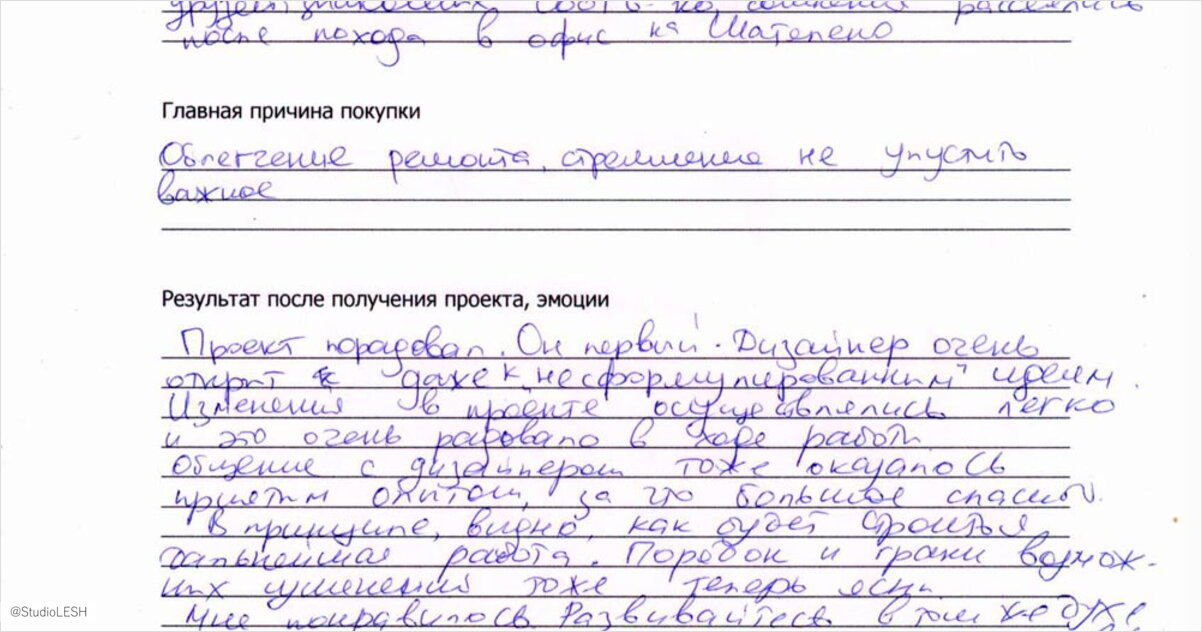 друзей/знакомых,
после похода в офис на Шателено
Главная причина покупки
Облегчение ремонта, стремление не упустить
важное
Результат после получения проекта, эмоции
Проект порадовал. Он первый. Дизайнер очень
открыт даже к "несформулированным" идеям.
Изменения в проекте осуществлялись легко
и это очень радовало в ходе работы
общение с дизайнером тоже оказалось
приятным опытом, за что большое спасибо.
В принципе, видно, как будет строиться
дальнейшая работа. Порядок и грани возмож-
ных изменений тоже теперь ясны
Мне понравилось. Развивайтесь в том же духе!
@StudioLESH